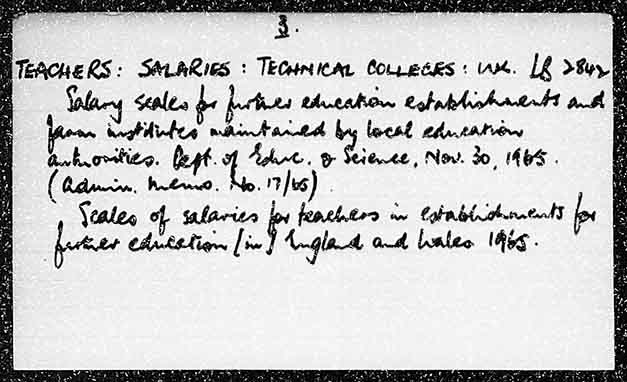 3.
TEACHERS: SALARIES: TECHNICAL COLLEGES: UK. LB 2842
Salary scales for further education establishments and
farm institutes maintained by local education
authorities. Dept. of Educ. & Science, Nov. 30, 1965.
(Admin. memo. No. 17/65)
Scales of salaries for teachers in establishments for
further education [in] England and Wales 1965.